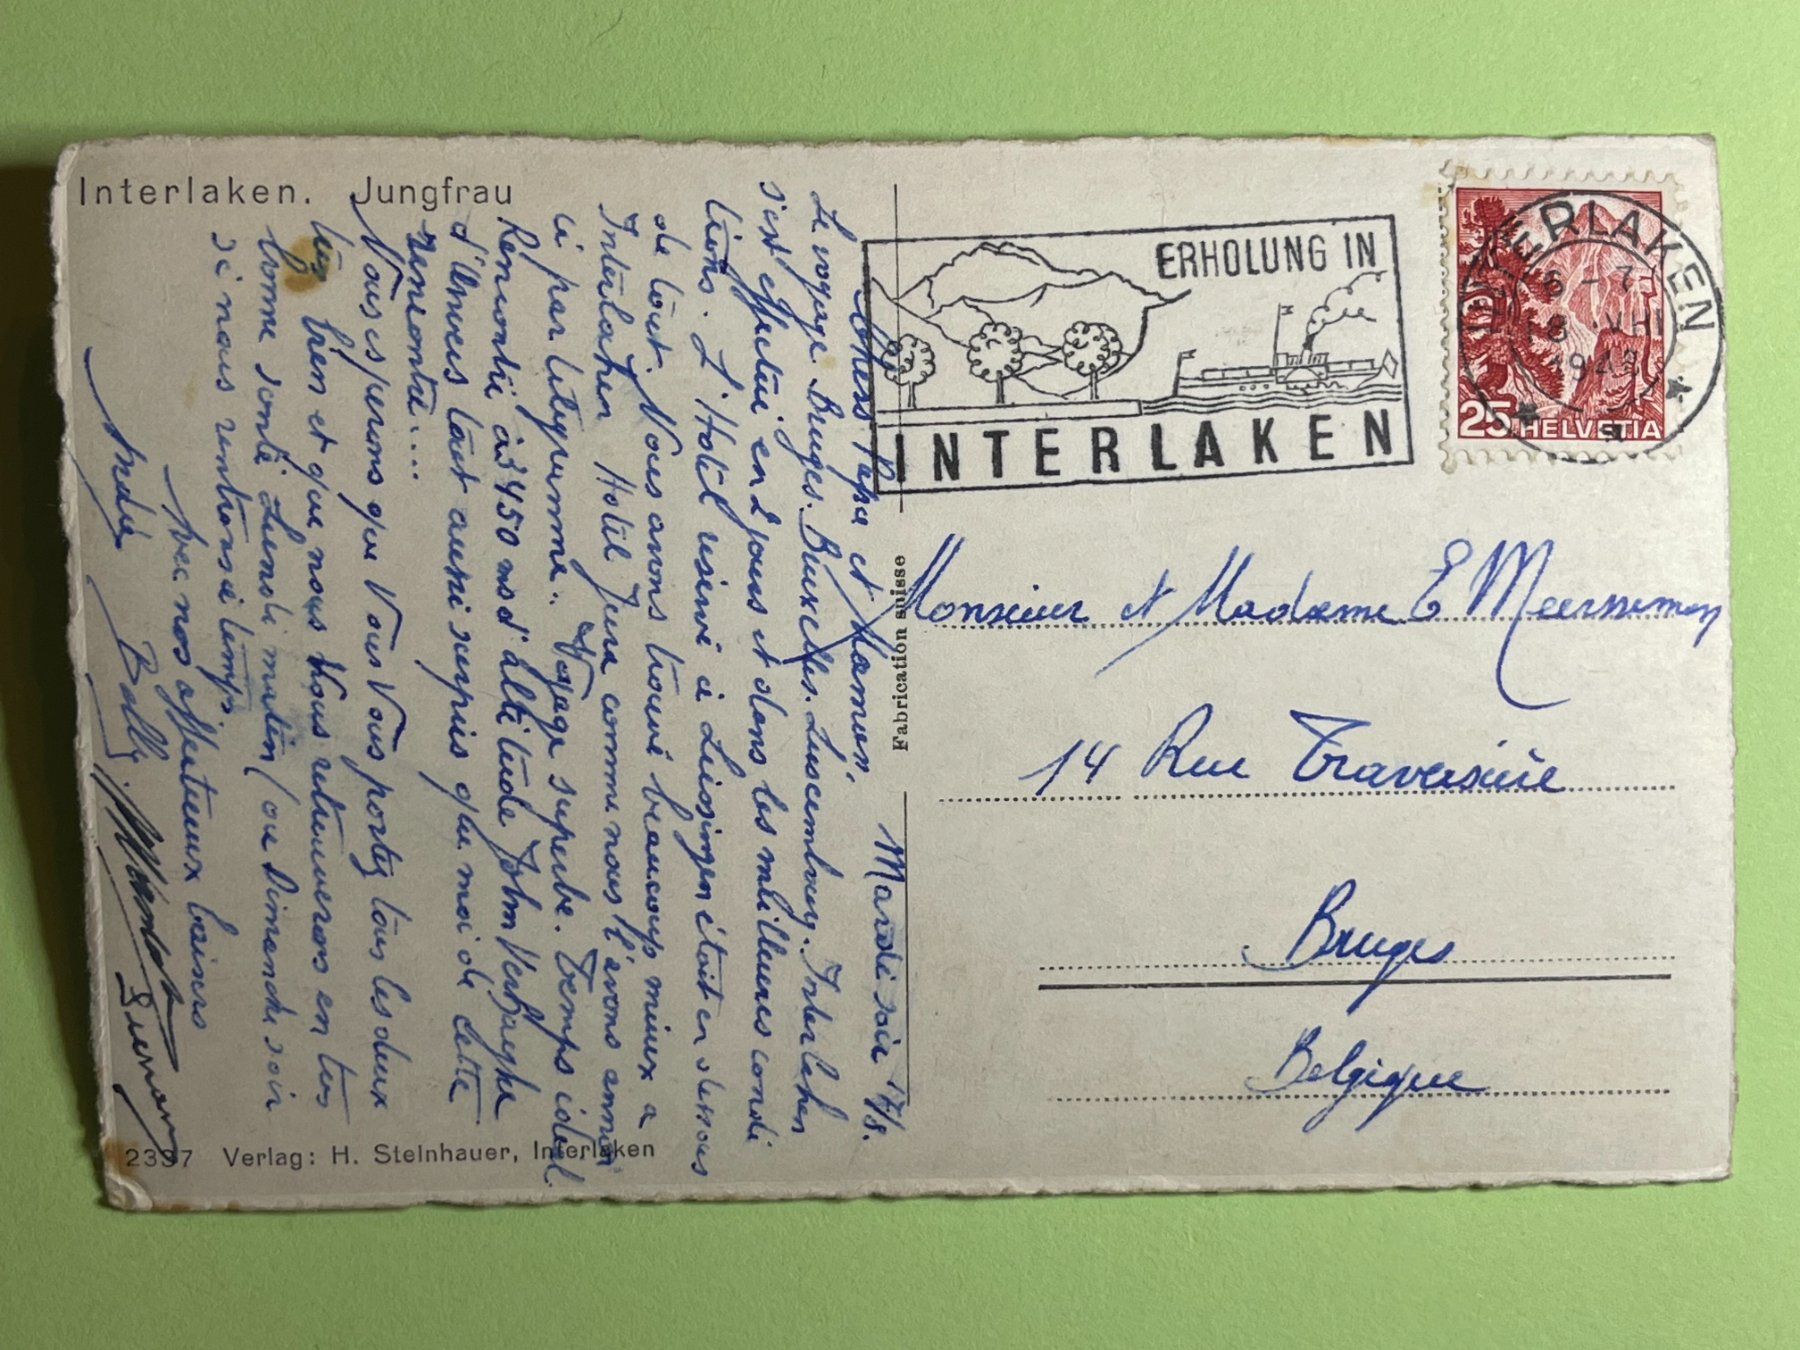 Interlaken. Jungfrau
Mardi soir 17/8.
Chers Papa et Maman,
Le voyage Bruges. Bruxelles. Luxembourg. Interlaken
s'est effectué en 2 jours et dans les meilleures condi
tions. L'Hôtel réservé à Leissingen était en dessous
de tout. Nous avons trouvé beaucoup mieux a
Interlaken Hotel Jura comme nous l'avons annon
cé par télégramme. Voyage superbe. Temps idéal.
Rencontré à 1450 m d'altitude John Verhaeghe
d'Anvers tout aussi surpris que moi de cette
rencontre....
Nous espérons que Vous Vous portez tous les deux
très bien et que nous Vous retrouverons en très
bonne santé Lundi matin (ou Dimanche soir
si nous rentrons à temps.
Avec nos affectueux baisers
André Bally.
2337 Verlag: H. Steinhauer, Interlaken
Fabrication suisse
ERHOLUNG IN
INTERLAKEN
INTERLAKEN
6-7
VIII
1948
25 HELVETIA
Monsieur et Madame E
14 Rue Traversière
Bruges
Belgique